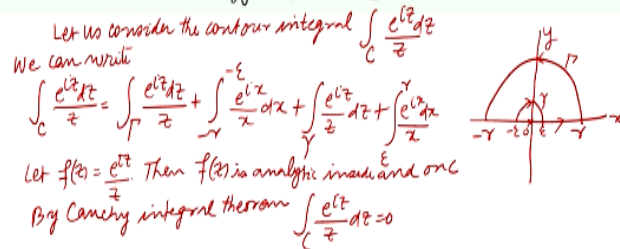 Let us consider the contour integral ∫_C e^{iz}dz/z
We can write
∫_C e^{iz}dz/z = ∫_Γ e^{iz}dz/z + ∫_{-r}^{-ε} e^{ix}/x dx + ∫_γ e^{iz}/z dz + ∫_ε^r e^{ix}/x dx
Let f(z) = e^{iz}/z. Then f(z) is analytic inside and on C
By Cauchy integral theorem ∫_C e^{iz}/z dz = 0
y
Γ
γ
-r -ε 0 ε r x